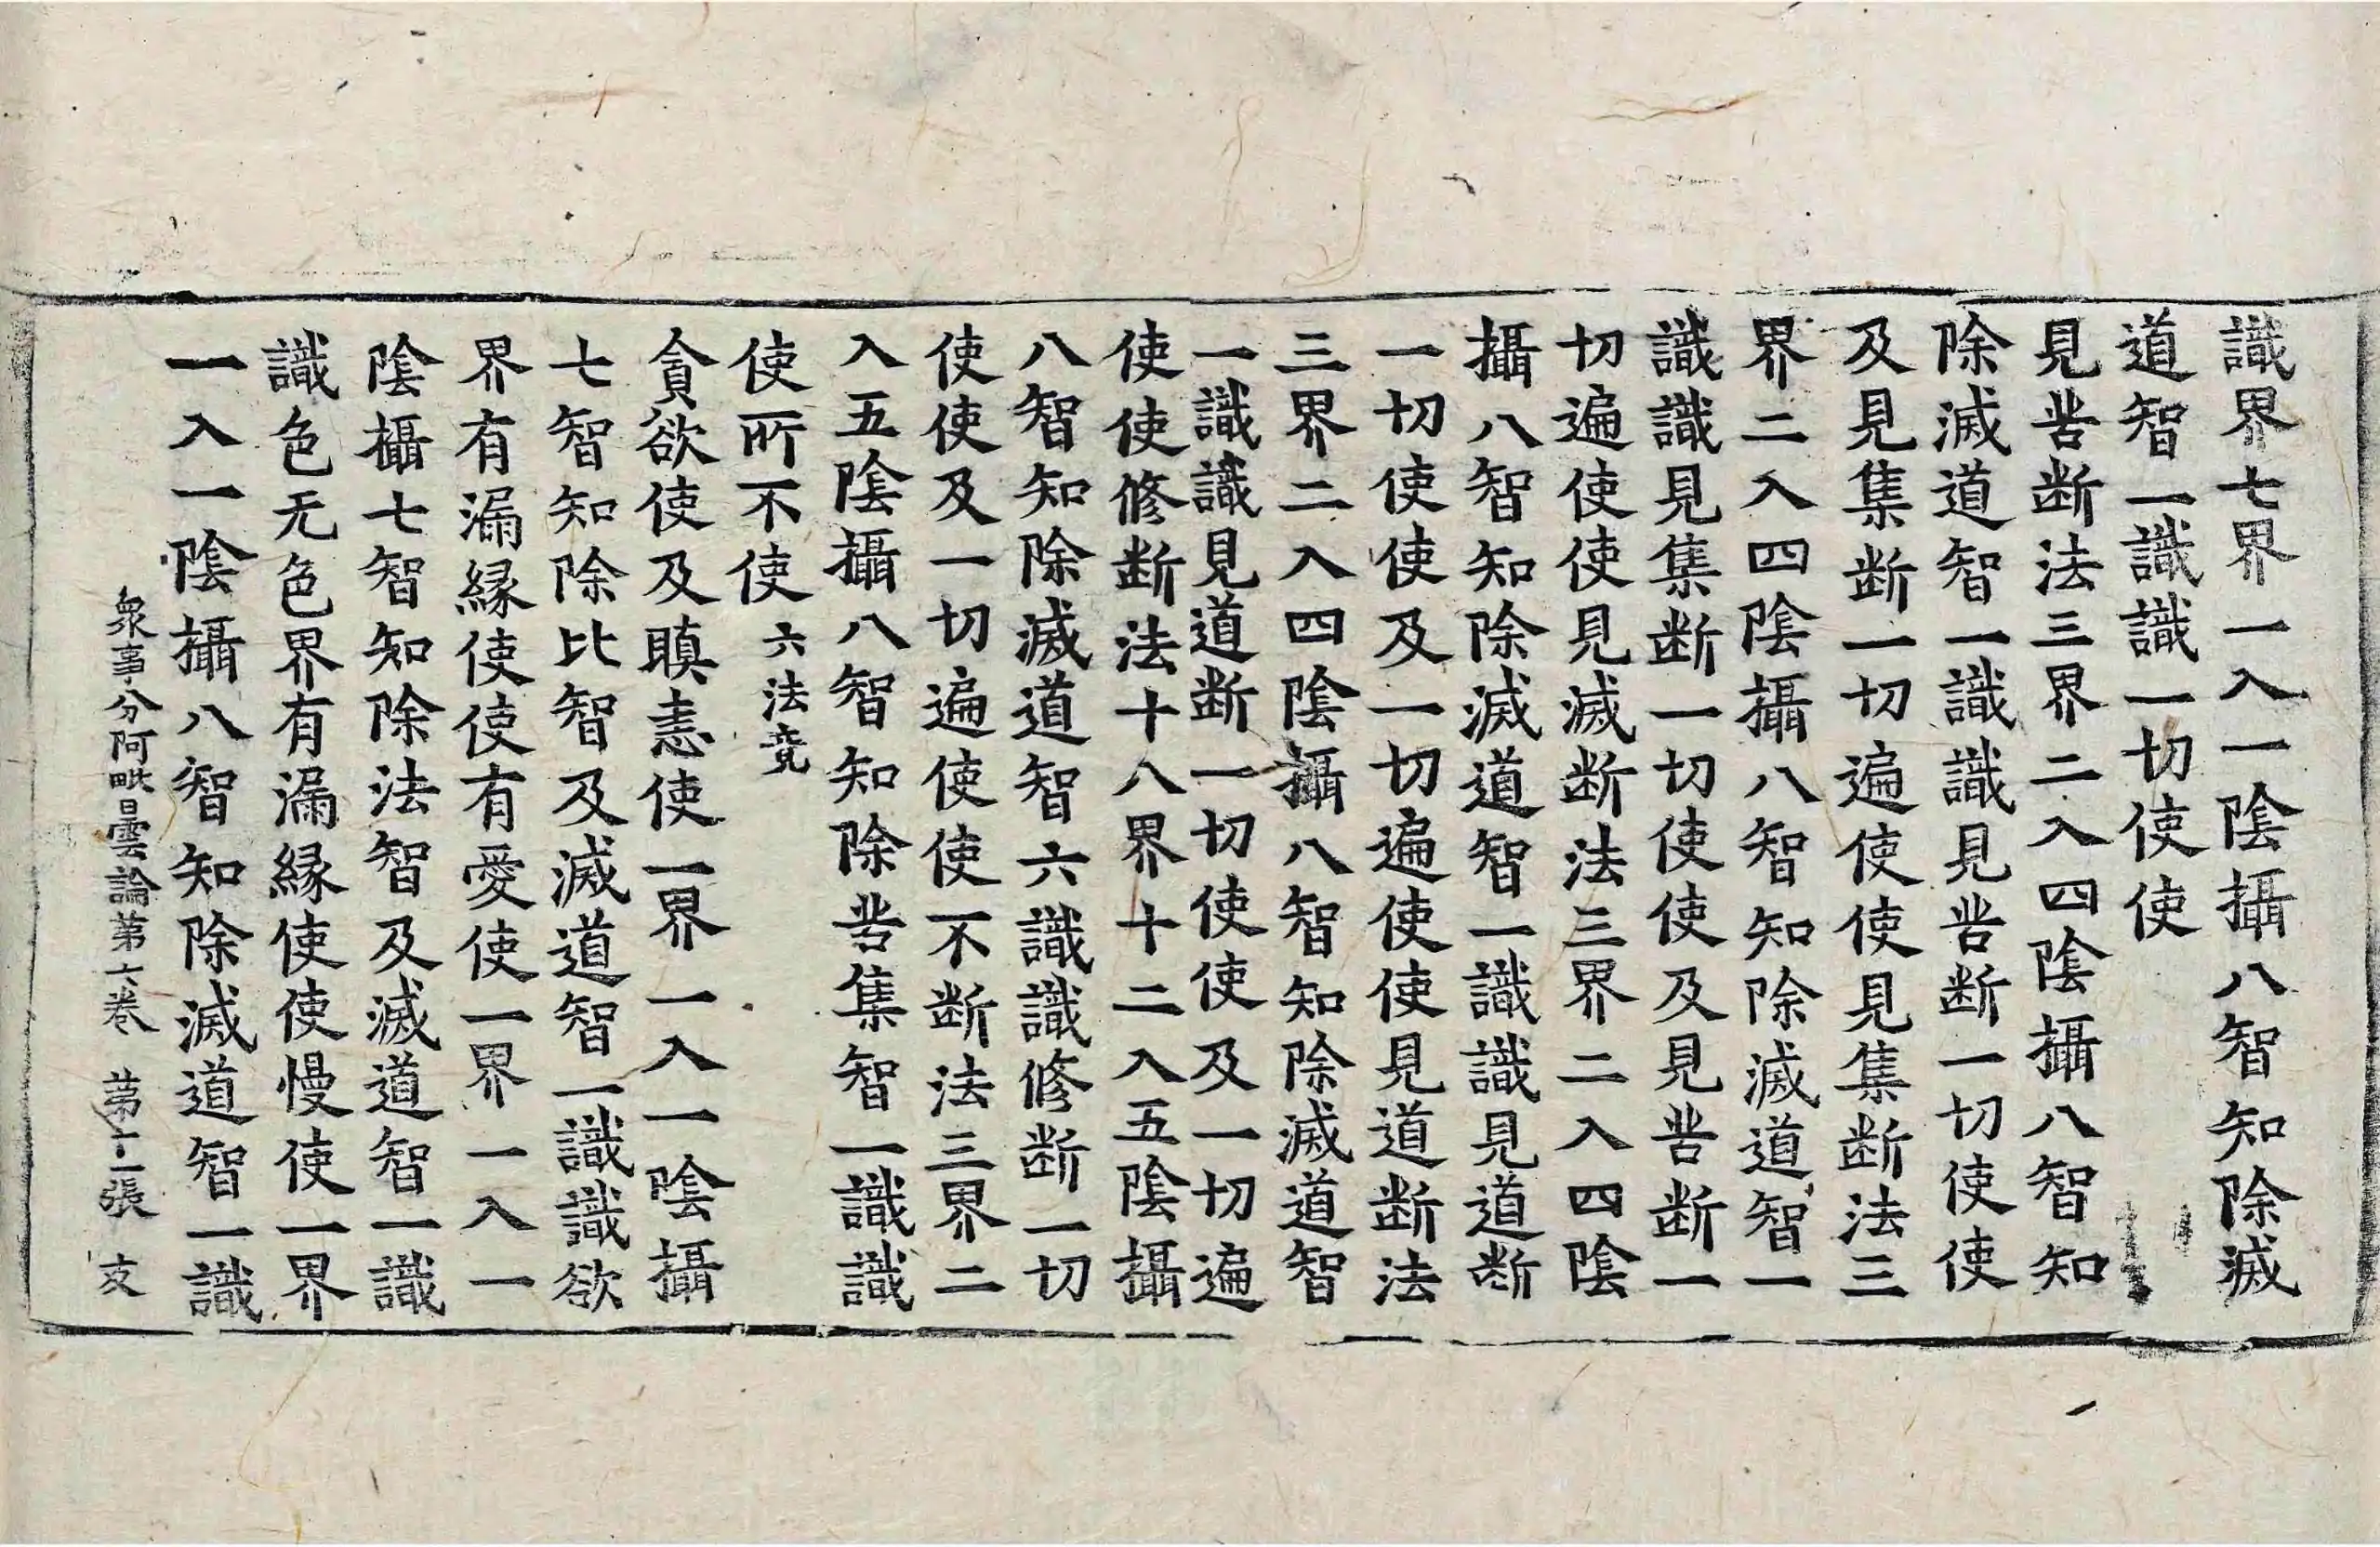 識界七界一入一陰攝八智知除滅
道智一識識一切使使
見苦断法三界二入四陰攝八智知
除滅道智一識識見苦断一切使使
及見集断一切遍使使見集断法三
界二入四陰攝八智知除滅道智一
識識見集断一切使使及見苦断一
切遍使使見滅断法三界二入四陰
攝八智知除滅道智一識識見道断
一切使使及一切遍使使見道断法
三界二入四陰攝八智知除滅道智
一識識見道断一切使使及一切遍
使使修断法十八界十二入五陰攝
八智知除滅道智六識識修断一切
使使及一切遍使使不断法三界二
入五陰攝八智知除苦集智一識識
使所不使六法竟
貪欲使及瞋恚使一界一入一陰攝
七智知除比智及滅道智一識識欲
界有漏縁使使有愛使一界一入一
陰攝七智知除法智及滅道智一識
識色无色界有漏縁使使慢使一界
一入一陰攝八智知除滅道智一識
衆事分阿毗曇論苐六卷 苐十二張 友